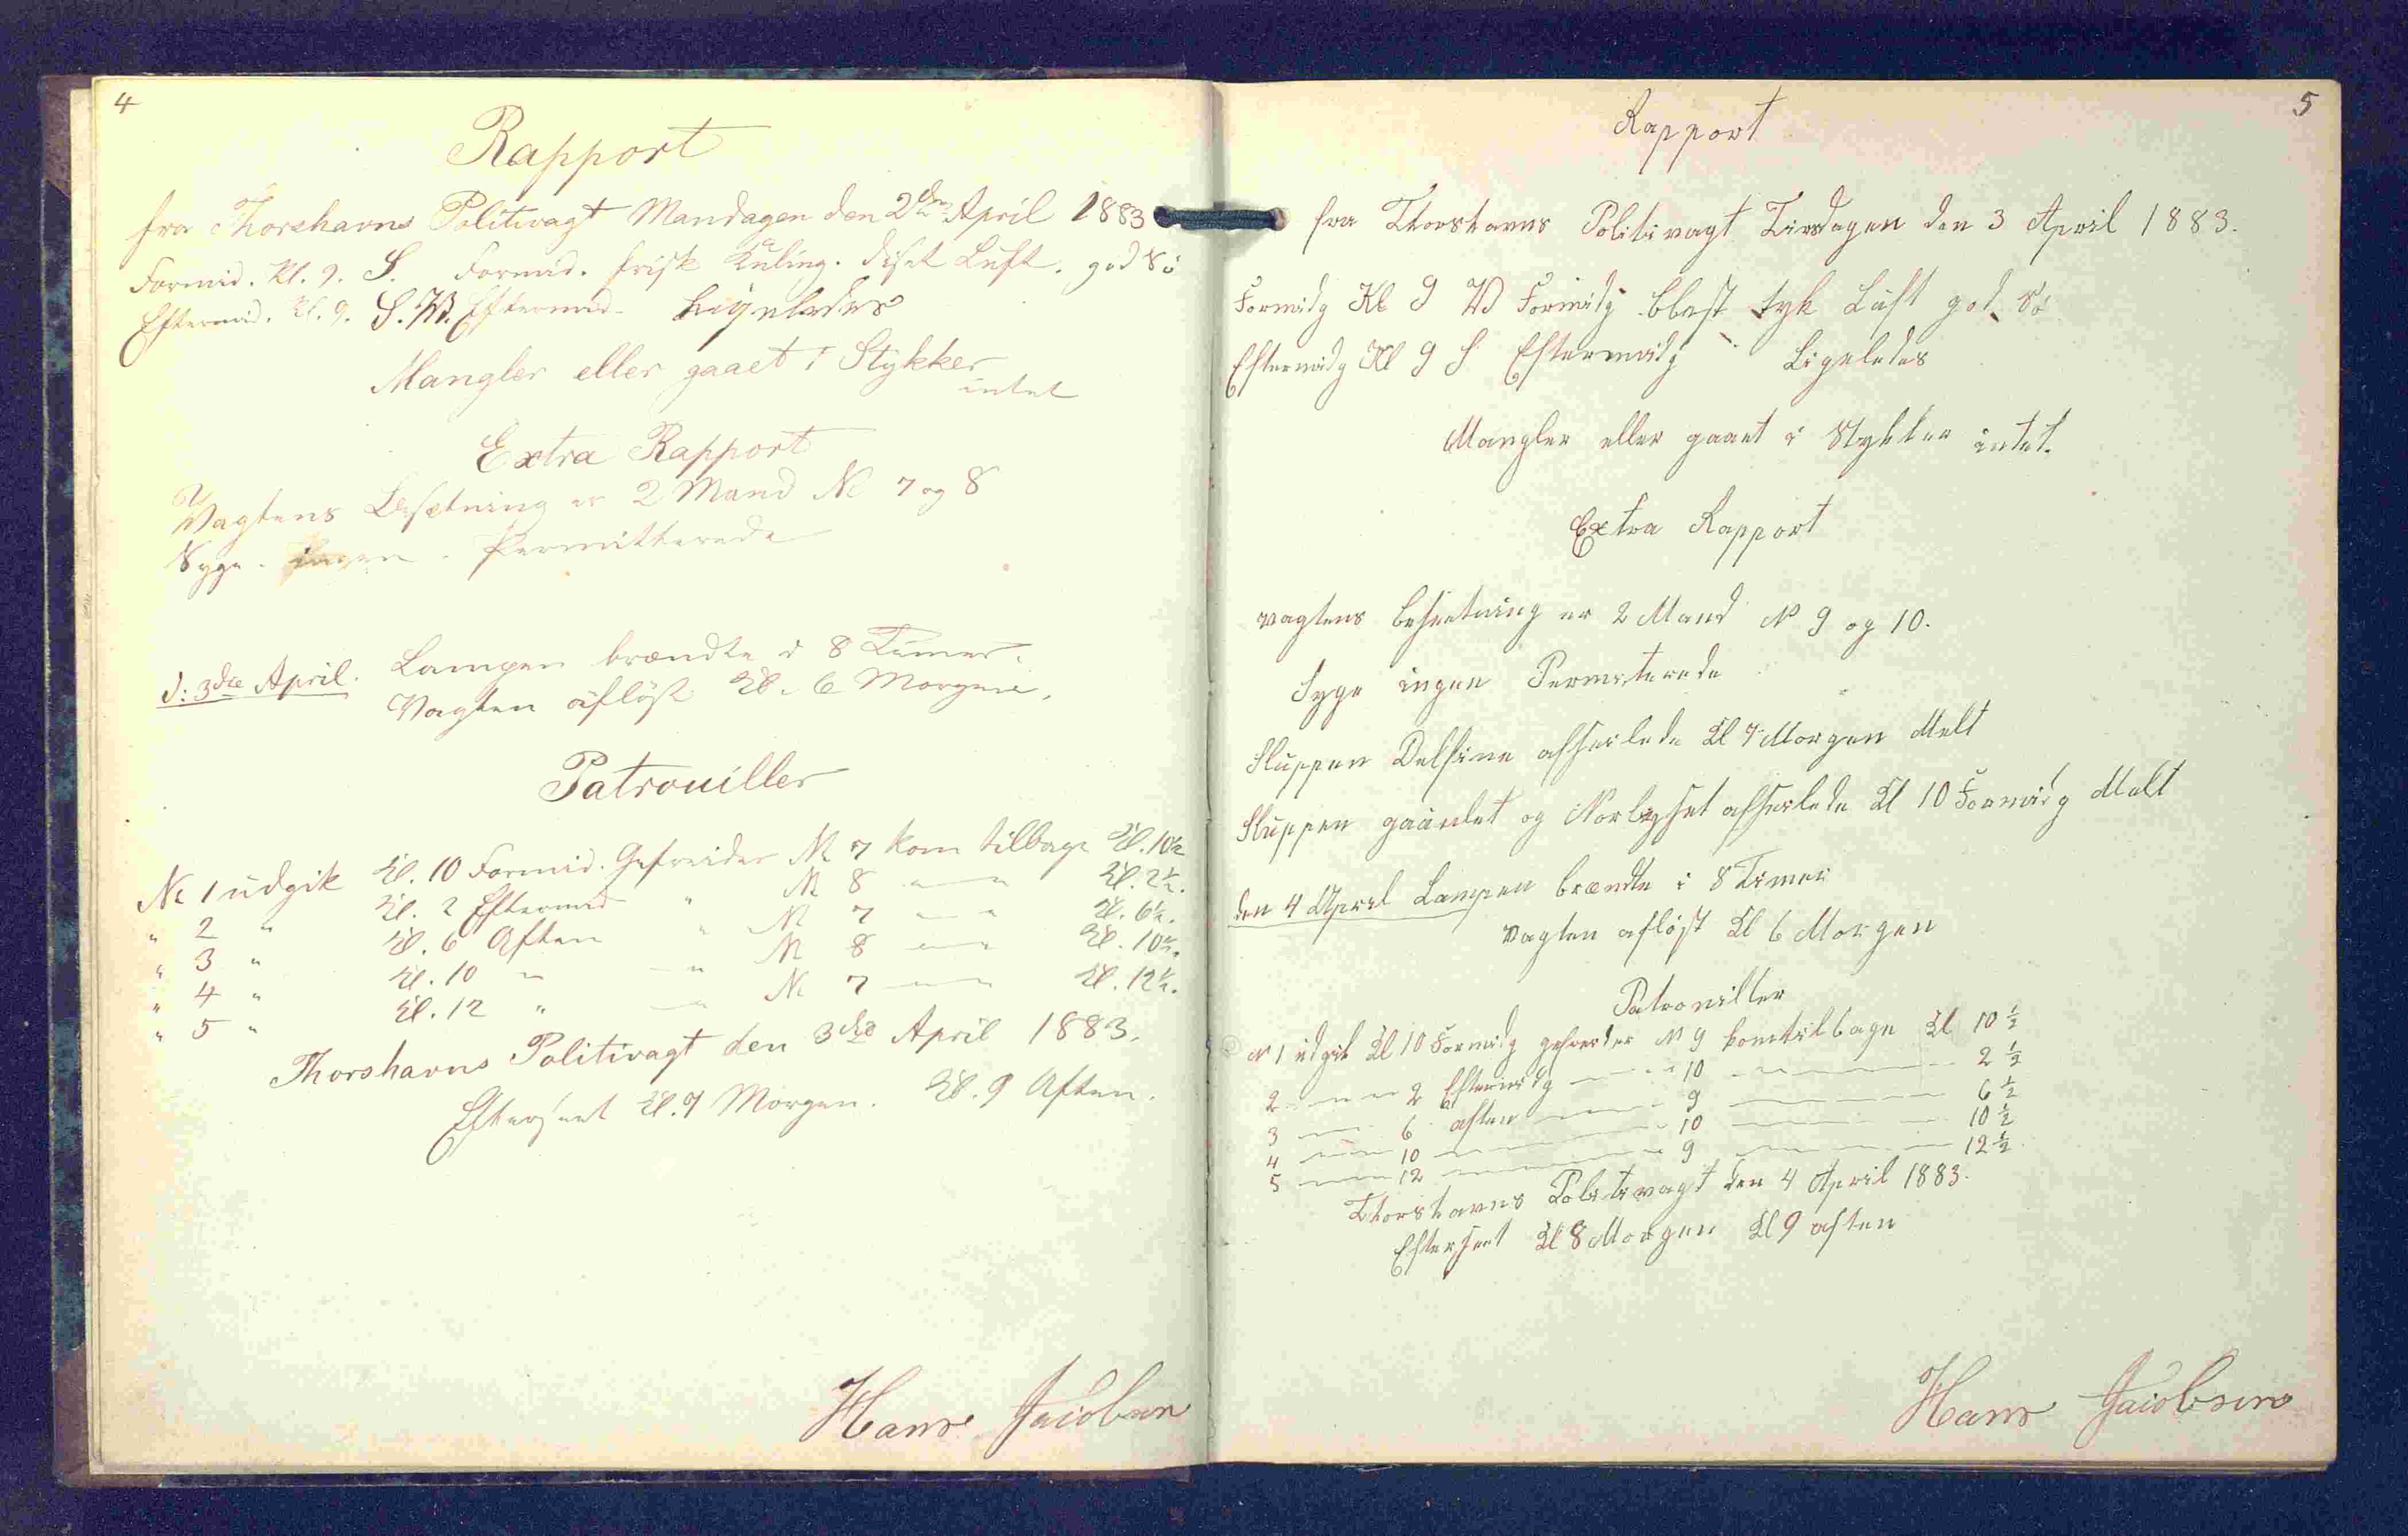 4
Rapport
fra Thorshavns Politivagt Mandagen den 2den April 1883
Formid. Kl. 9. S. Formid. frisk Kuling. diset Luft. god Sö
Eftermid. Kl. 9. S.W. Eftermid. Ligeledes
Mangler eller gaaet i Stykker
intet
Extra Rapport
Vagtens Besætning er 2 Mand No 7 og 8
Syge. Ingen. Permitterede
d: 3die April. Lampen brændte i 8 Timer.
Vagten aflöst Kl. 6 Morgen.
Patrouiller
No 1 udgik Kl. 10 Formid. Gefreider No 7 kom tilbage Kl. 10½
" 2 " Kl. 2 Eftermid " No 8 — " Kl. 2½.
" 3 " Kl. 6 Aften " No 7 — " Kl. 6½.
" 4 " Kl. 10 " — " No 8 — " Kl. 10½.
" 5 " Kl. 12 " — " No 7 — " Kl. 12½.
Thorshavns Politivagt den 3die April 1883.
Efterseet Kl. 7 Morgen. Kl. 9 Aften.
Hans Jacobsen
5
Rapport
fra Thorshavns Politivagt Tirsdagen den 3 April 1883.
Formidg Kl 9 W Formidg blest tyk Luft god Sö
Eftermidg Kl 9 S Eftermidg Ligeledes
Mangler eller gaaet i Stykker intet.
Extra Rapport
vagtens besætning er 2 Mand N 9 og 10.
Syge ingen Permiterede
Sluppen Delfine afseilede Kl 7 Morgen Melt
Sluppen og Norlyset afseilede Kl 10 Formidg Melt
den 4 April Lampen brændte i 8 Timer
vagten aflöst Kl 6 Morgen
Patroviller
N 1 udgik Kl 10 Formidg gefreider N 9 komtilbage Kl 10 ½
2 — 2 Eftermidg — 10 — 2 ½
3 — 6 aften — 9 — 6 ½
4 — 10 — 10 — 10 ½
5 — 12 — 9 — 12 ½
Thorshavns Politivagt den 4 April 1883.
Efterseet Kl 8 Morgen Kl 9 aften
Hans Jacobsen